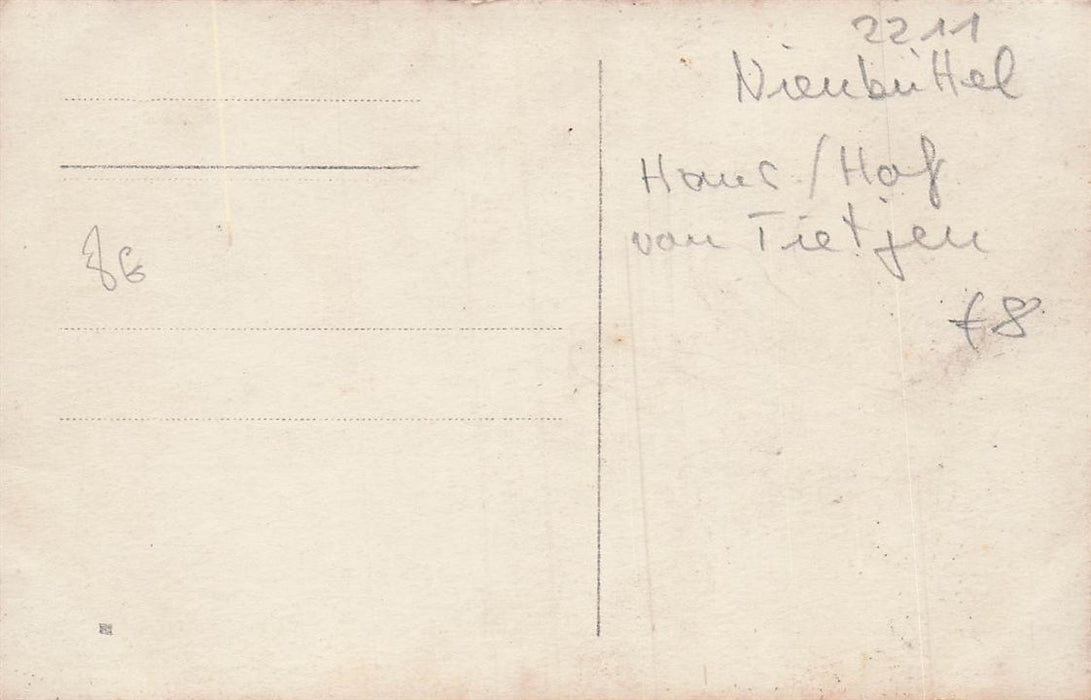 2211
Nienbüttel
Haus/Hof
von Tietjen
8